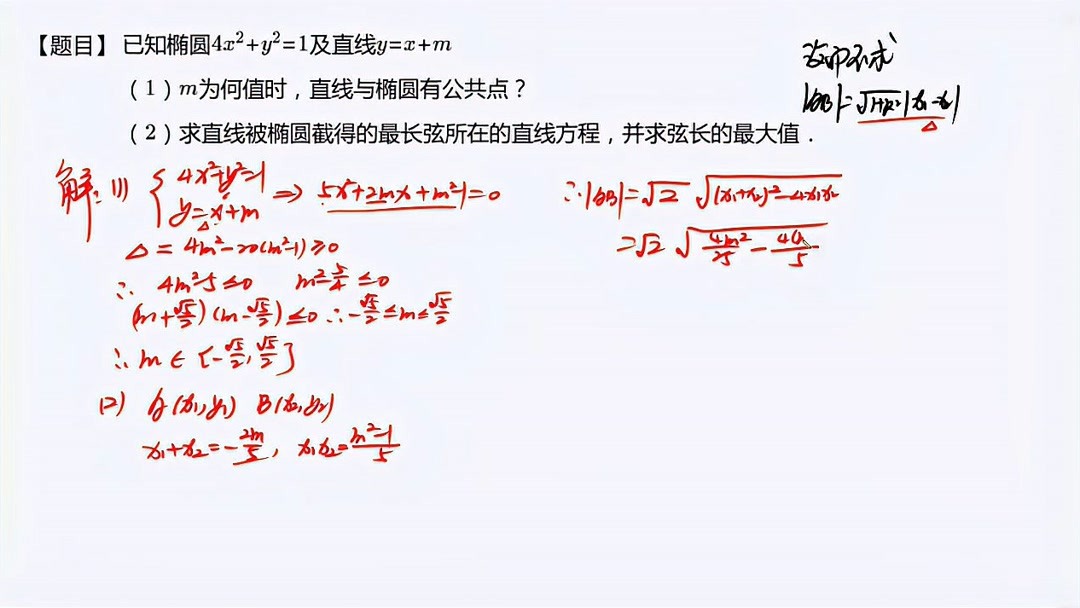 【题目】已知椭圆4x²+y²=1及直线y=x+m
(1) m为何值时，直线与椭圆有公共点？
(2) 求直线被椭圆截得的最长弦所在的直线方程，并求弦长的最大值．
设而不求
|AB|=√1+k²|x₁-x₂|
Δ
解: (1) { 4x²+y²=1
y=x+m ⇒ 5x²+2mx+m²-1=0
Δ = 4m²-20(m²-1)≥0
∴ 4m²-5≤0 m²-5/4≤0
(m+√5/2)(m-√5/2)≤0 ∴ -√5/2≤m≤√5/2
∴ m∈[-√5/2, √5/2]
(2) A(x₁,y₁) B(x₂,y₂)
x₁+x₂=-2m/5, x₁x₂=m²-1/5
∴|AB|=√2 √(x₁+x₂)²-4x₁x₂
=√2 √4m²/25 - 4(/5